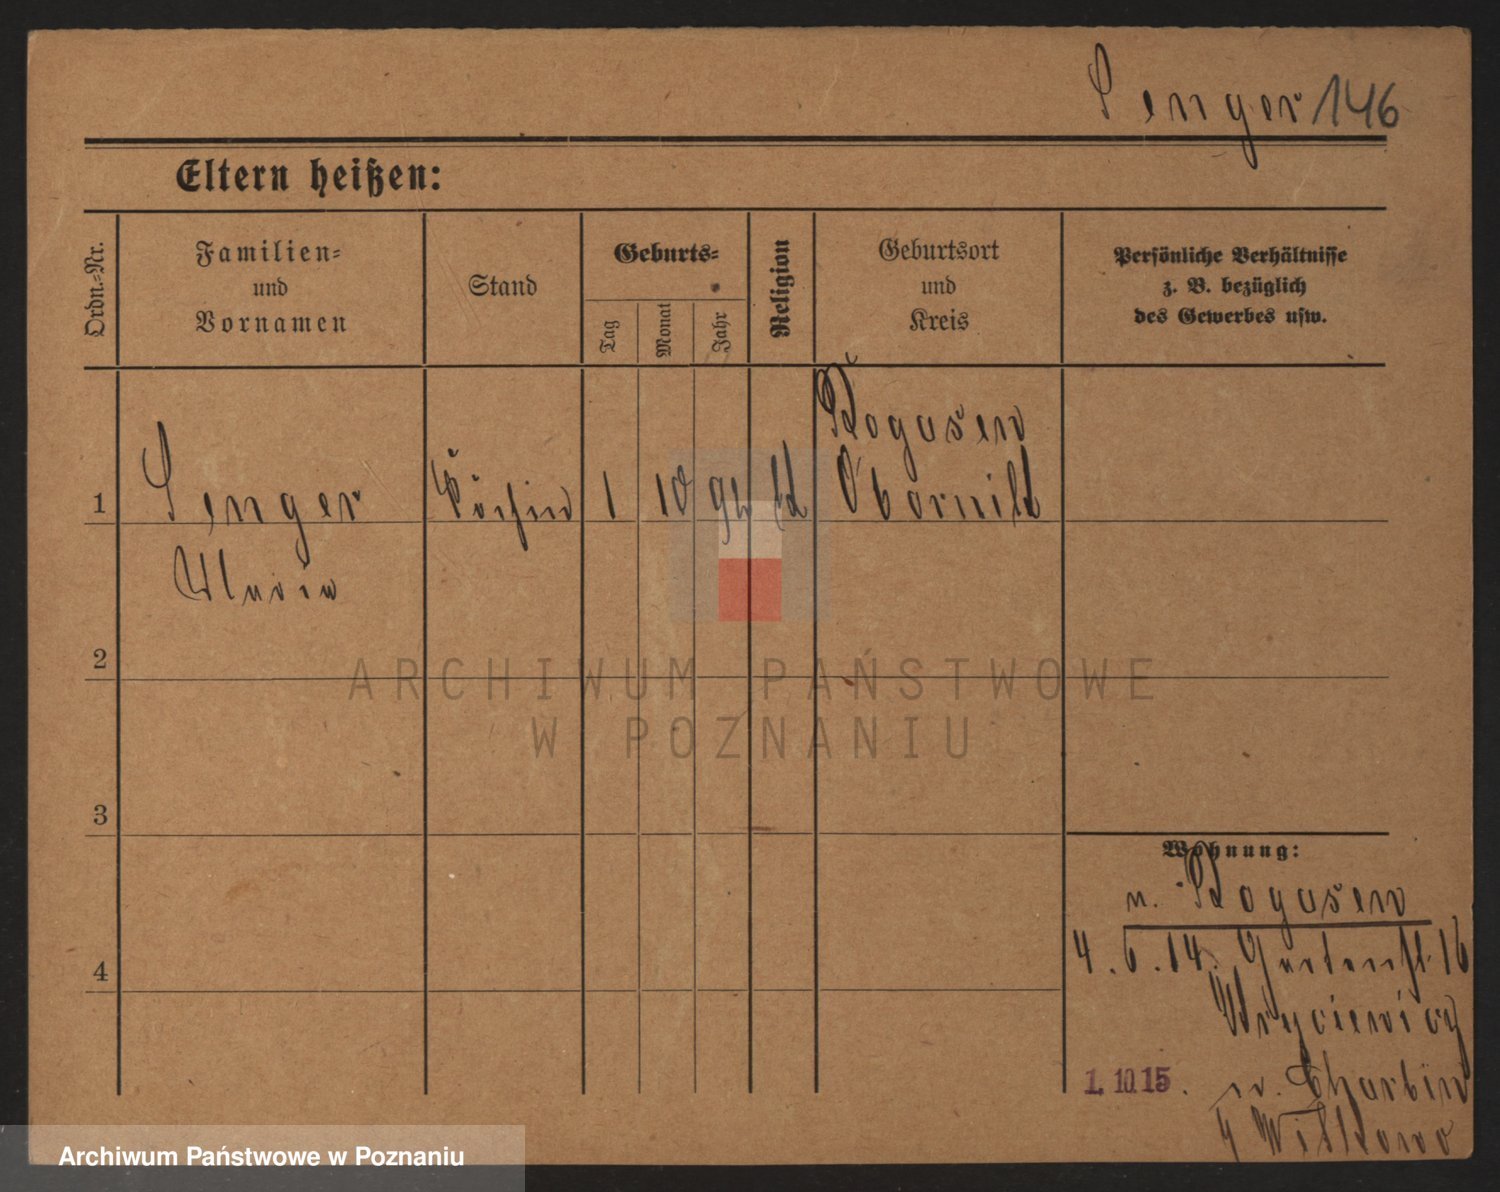 Senger 146
Eltern heißen:
Ordn.-Nr.
Familien-
und
Vornamen
Stand
Geburts-
Tag
Monat
Jahr
Religion
Geburtsort
und
Kreis
Persönliche Verhältnisse
z. B. bezüglich
des Gewerbes usw.
1
Senger
Maria
Köchin
1
10
94
kt
Rogasen
Obornik
2
3
4
Wohnung:
n. Rogasen
4.6.14. Gartenstr. 16
1. 10. 15.
n.
Witkowo
ARCHIWUM PAŃSTWOWE
W POZNANIU
Archiwum Państwowe w Poznaniu